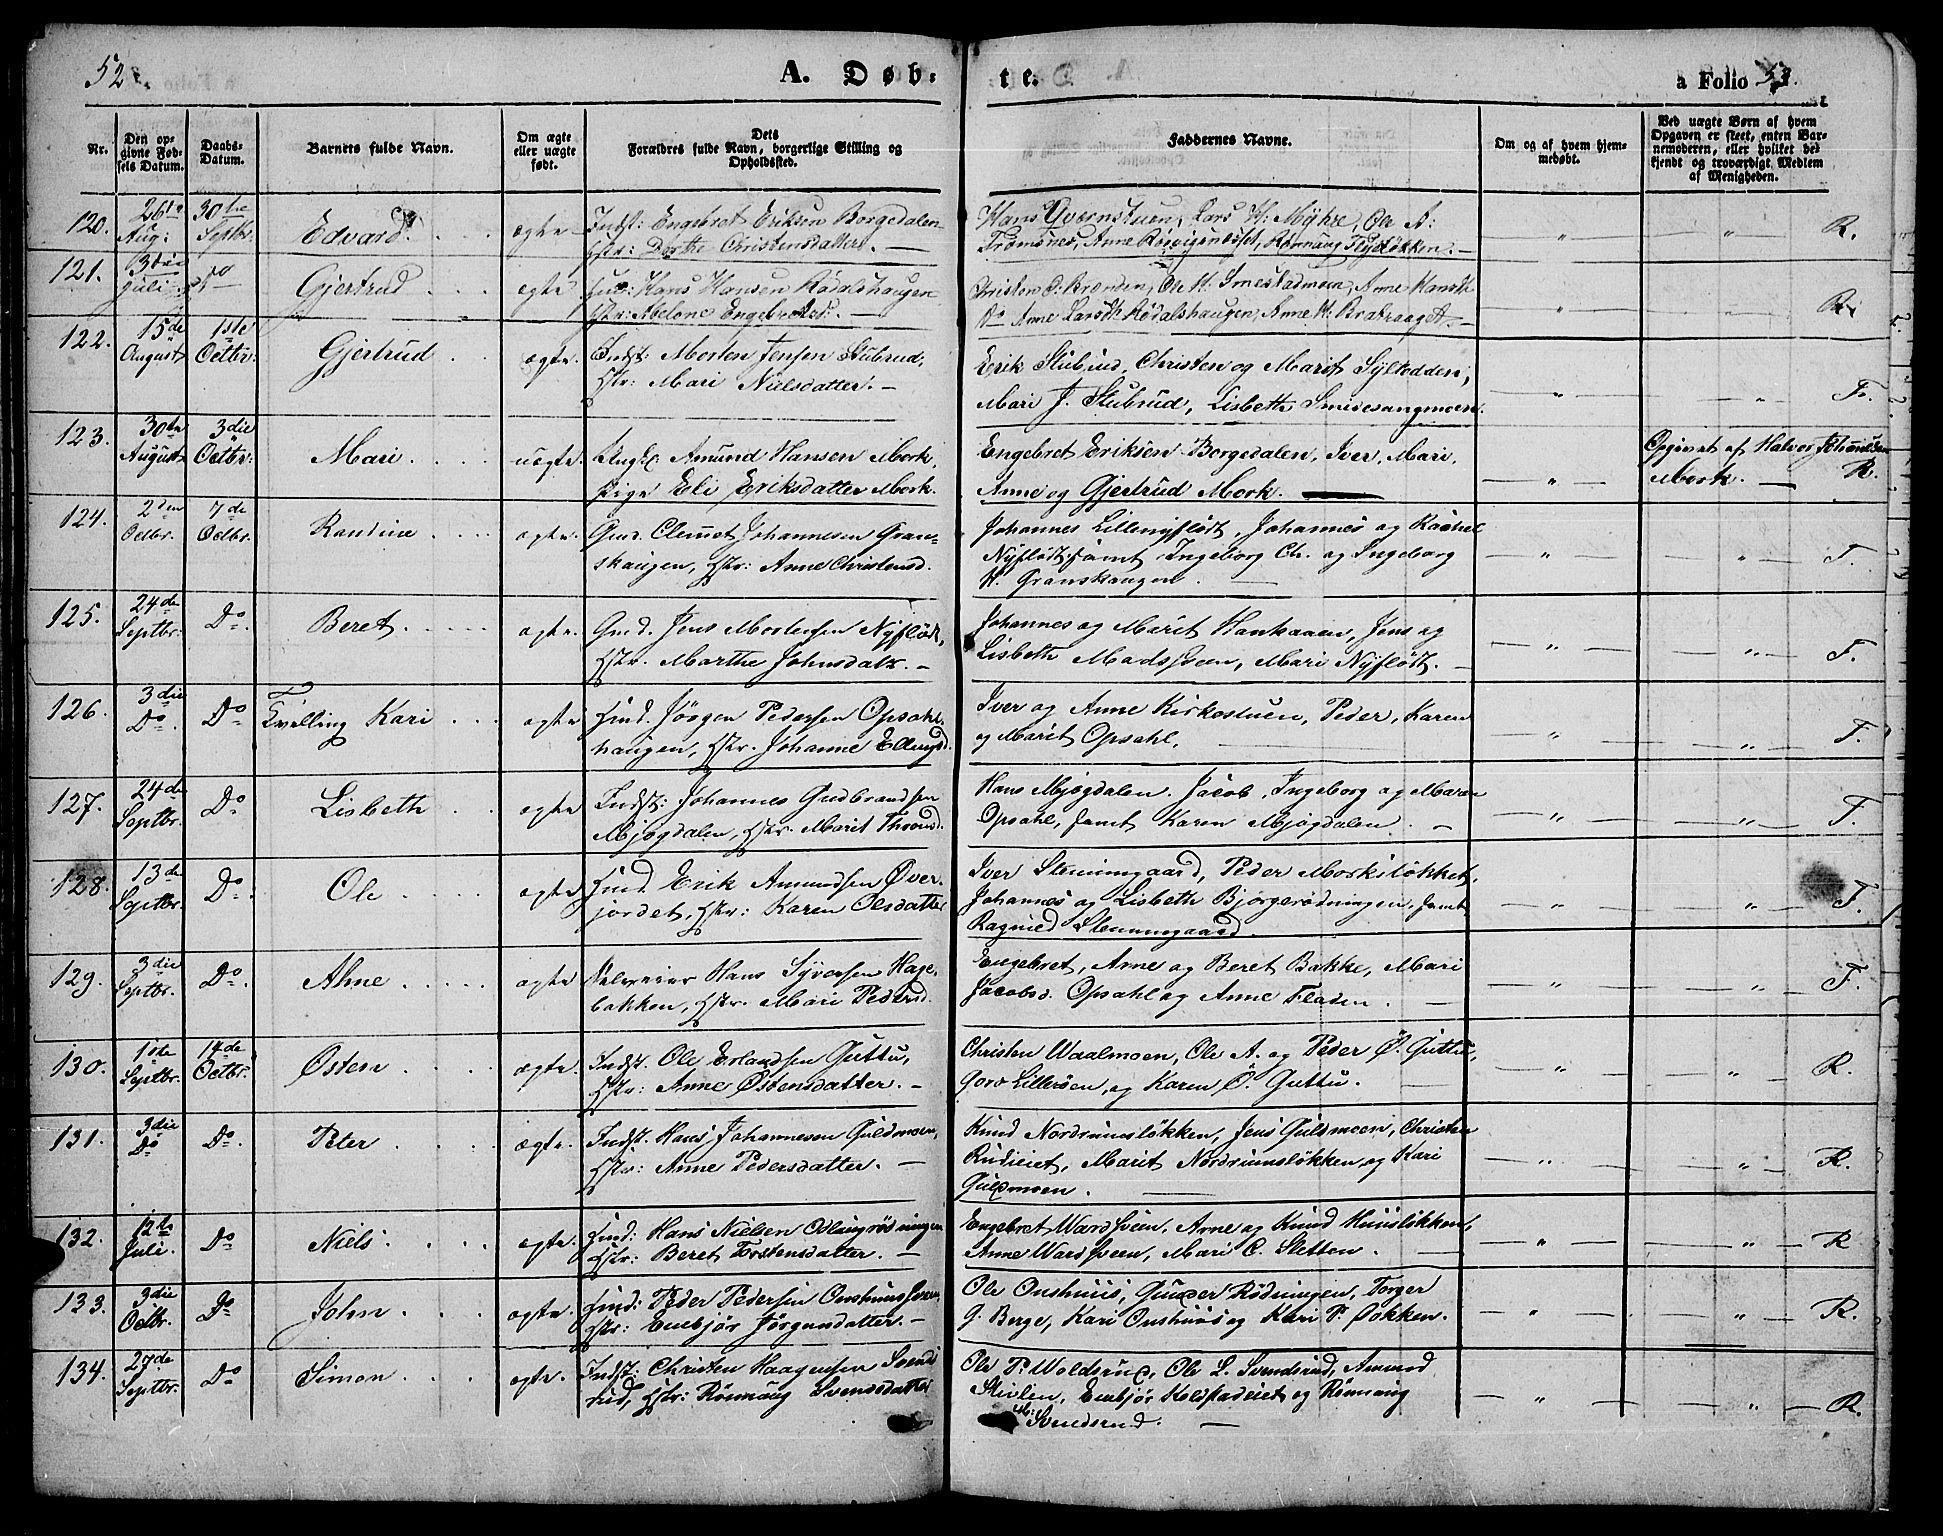 52
A. Døb-
te.
a Folio 53.
Nr.
Den op-
givne Fød-
sels Datum.
Daabs-
Datum.
Barnets fulde Navn.
Om ægte
eller uægte
født.
Dets
Forældres fulde Navn, borgerlige Stilling og
Opholdssted.
Faddernes Navne.
Om og af hvem hjem-
medøbt.
Ved uægte Børn af hvem
Opgaven er skeet, enten Bar-
nemoderen, eller hvilket be-
kjendt og troværdigt Medlem
af Menigheden.
120. 26de Aug: 30te Septbr. Edvard. ægte Indst: Engebret Eriksen Borgedalen
Hstr: Dorthe Christensdatter. —
Hans Qværnstuen, Lars H: Myhre, Ole A:
Tromsnes, Anne Rønnaug Flydeløkken — R.
121. Juli Do Gjertrud ægte Hans Hansen Rødalshaugen
Hstr: Abelone Engebretsd: —
Christen O: Brænden, Ole H. Smestadmoen, Anne Hansdtr
Do Anne Larsdtr Rødalshaugen, Anne H. R.
122. 15de August 1ste Octbr: Gjertrud ægte. Indst: Morten Jensen Stubrud,
Hstr: Mari Nielsdatter. —
Erik Stubrud, Christen og Marit Sylteddden,
Mari J. Stubrud, Lisbeth Smidesangmoen. F.
123. 30te August 3die Octbr: Mari. uægte. Ungk. Amund Hansen Mork,
Pige Eli Eriksdatter Mork.
Engebret Eriksen Borgedalen, Iver, Mari,
Anne og Gjertrud Mork. —
Opgivet af Halvor
Mork. — R.
124. 2den Octbr. 7de Octbr. Randine ægte. Gmd. Clemet Johannesen Gran-
skaugen, Hstr: Anne Christensd.
Johannes Lillenyflødt, Johannes og Rachel
Nyflødt, samt Ingeborg Ch. og Ingeborg
H. Granskaugen. F.
125. 24de Septbr. Do. Beret. ægte. Gmd. Jens Mortensen Nyflødt,
Hstr. Marthe Johnsdatr. —
Johannes og Marit Haukaaen, Jens og
Lisbeth Madssveen, Mari Nyflødt. — F.
126. 3die Do. Do Tvilling Kari ægte Hmd. Jørgen Pedersen Opsahl-
haugen, Hstr. Johanne Ellingsd.
Iver og Anne Kirkestuen, Peder, Karen
og Marit Opsahl. F.
127. 24de Septbr. Do Lisbeth ægte Indst: Johannes Gudbrandsen
Mjøgdalen, Hstr. Marit Thronds.
Hans Mjøgdalen. Jacob, Ingeborg og Maren
Opsahl, samt Karen Mjøgdalen. — F.
128. 13de Septbr. Do. Ole ægte Hmd. Erik Amundsen Øver-
jordet, Hstr: Karen Olsdatter
Iver Stenumgaard, Peder Morksløkket,
Johannes og Lisbeth Bjørgerødningen, samt
Ragnild Stenumgaard. F.
129. 3die Septbr. Do. Anne ægte Selveier Hans Syversen Hage-
bakken, Hstr. Mari Pedersd.
Engebret, Anne og Beret Bakke, Mari
Jacobsd. Opsahl og Anne Fladen. — F.
130. Septbr. 14de Octbr. Østen ægte. Indst. Ole Erlandsen Guttu,
Hstr: Anne Østensdatter. —
Christen Waalmoen, Ole A. og Peder Ø. Guttu,
Goro Lillerøen, og Karen Ø. Guttu. R.
131. 3die Do Do. Peter ægte. Indst. Hans Johannesen Guldmoen,
Hstr: Anne Pedersdatter. —
Knud Nordrumsløkken, Jens Guldmoen, Christen
Rudieiet, Marit Nordrumsløkken og Kari
Guldmoen. R.
132. 12te Juli. Do Niels ægte. Hmd: Hans Nielsen Odlaugrødningen
Hstr: Beret Torstensdatter. —
Engebret Wardsveen, Arne og Knud Huusløkken,
Anne Wardsveen, Mari C. Sletten. — R
133. 3die Octbr. Do John. ægte. Hmd: Peder Pedersen Onshuussveen,
Hstr: Embjør Jørgensdatter. —
Ole Onshuus, Gunder Rødningen, Torger
G. Berge, Kari Onshuus og Kari P. Løkken. R.
134. 27de Septbr. Do Simon ægte. Indst. Christen Haagensen Svends-
rud, Hstr: Rønnaug Svensdatter
Ole P. Woldsrud, Ole L. Svendsrud, Amund
Stivlen, Embjør Kolstadeiet og Rønnaug
Svendsrud. — R.